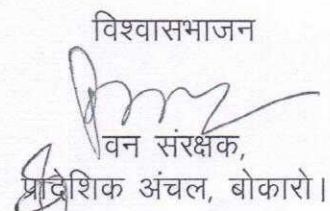 विश्वासभाजन
वन संरक्षक,
प्रादेशिक अंचल, बोकारो।